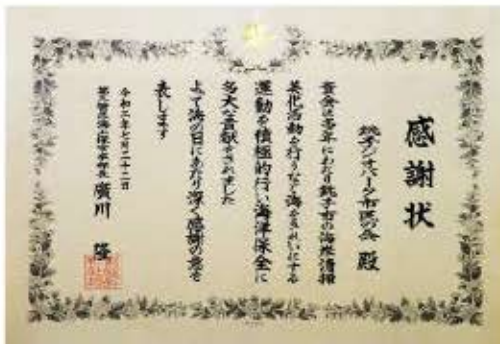 感謝状
銚子ジオパーク市民の会 殿
貴会は多年にわたり銚子市の海岸清掃
美化活動を行うなど海をきれいにする
運動を積極的に行い海洋保全に
多大な貢献をされました
よって海の日にあたり深く感謝の意を
表します
令和二年七月二十二日
第三管区海上保安本部長 廣川 隆